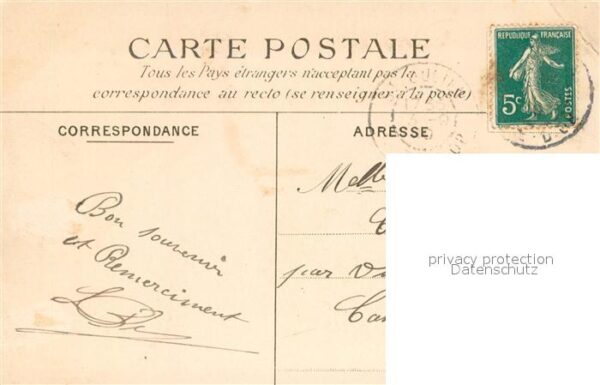 CARTE POSTALE
Tous les Pays étrangers n'acceptent pas la
correspondance au recto (se renseigner à la poste)
REPUBLIQUE FRANÇAISE
5c
POSTES
CORRESPONDANCE
ADRESSE
Bon souvenir
et Remerciment
Melle
par
privacy protection
Datenschutz